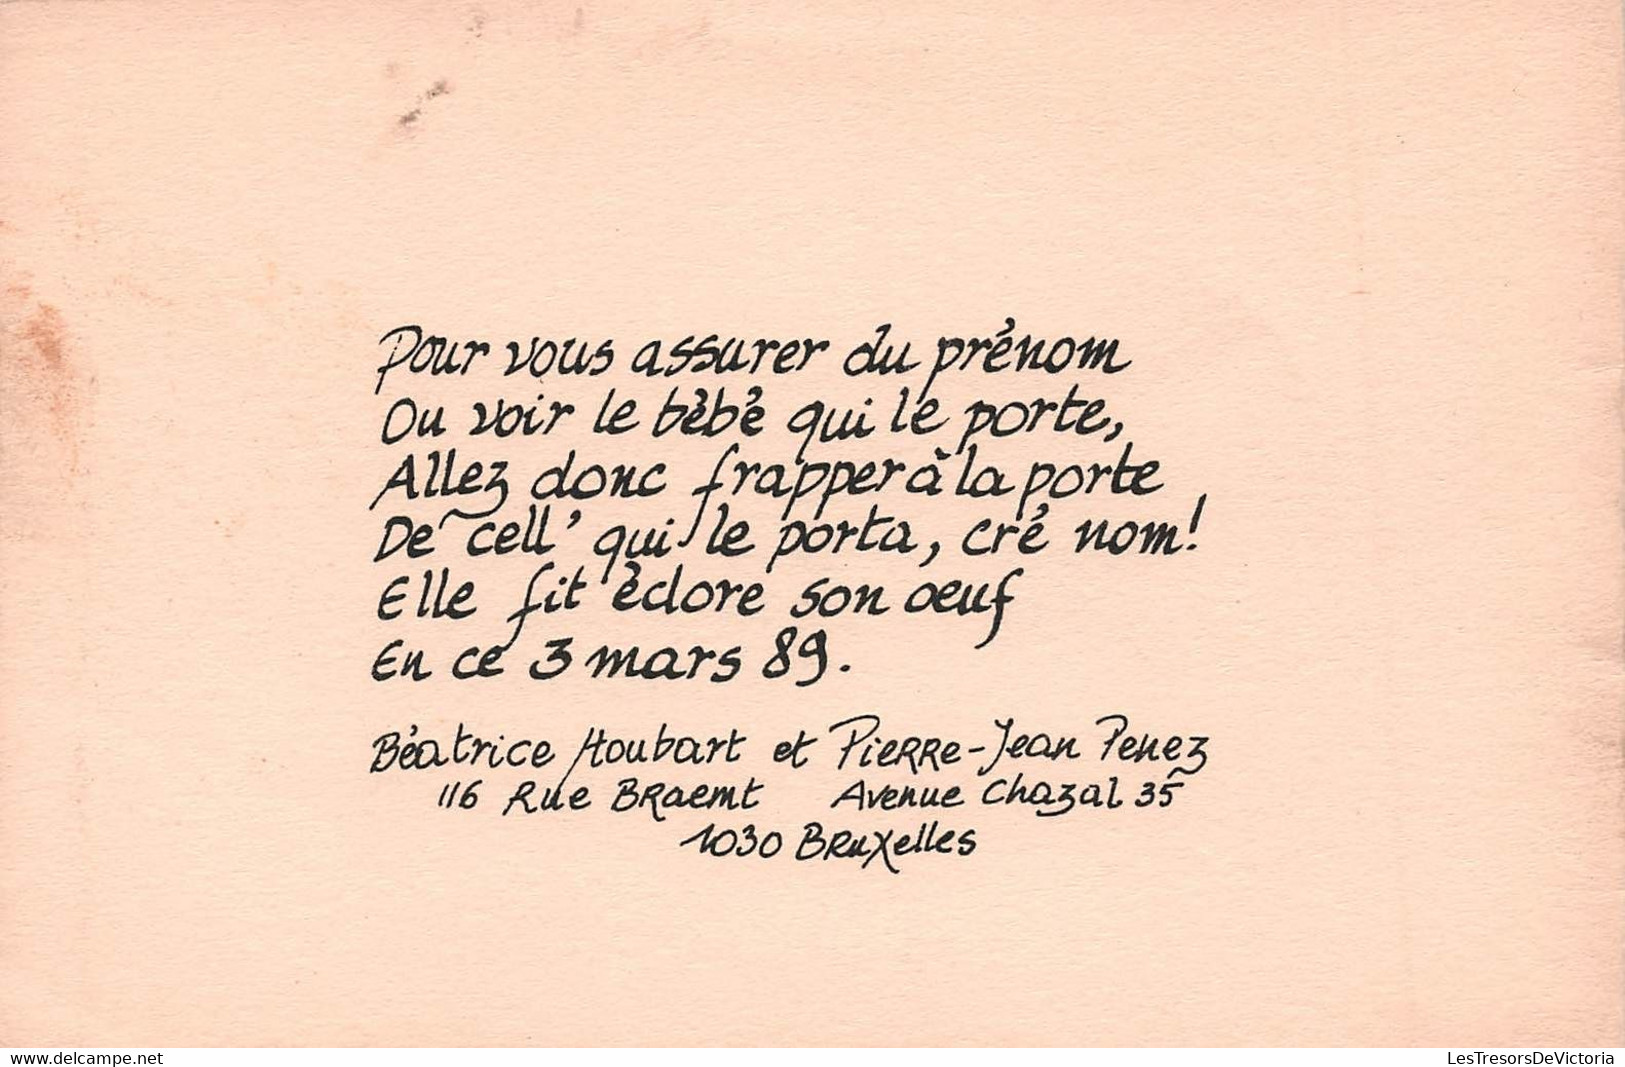 Pour vous assurer du prénom
Ou voir le bébé qui le porte,
Allez donc frapper à la porte
De cell' qui le porta, cré nom!
Elle fit éclore son oeuf
En ce 3 mars 89.
Béatrice Houbart et Pierre-Jean Penez
116 Rue Braemt Avenue Chazal 35
1030 Bruxelles
www.delcampe.net
LesTresorsDeVictoria